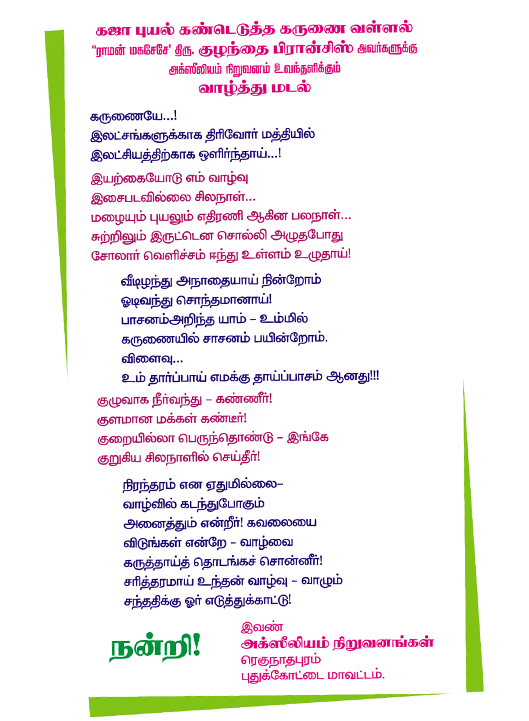 கஜா புயல் கண்டெடுத்த கருணை வள்ளல்
"ராமன் மகசேசே' திரு. குழந்தை பிரான்சிஸ் அவர்களுக்கு
அக்ஸீலியம் நிறுவனம் உவந்தளிக்கும்
வாழ்த்து மடல்
கருணையே...!
இலட்சங்களுக்காக திரிவோர் மத்தியில்
இலட்சியத்திற்காக ஒளிர்ந்தாய்...!
இயற்கையோடு எம் வாழ்வு
இசைபடவில்லை சிலநாள்...
மழையும் புயலும் எதிரணி ஆகின பலநாள்...
சுற்றிலும் இருட்டென சொல்லி அழுதபோது
சோலார் வெளிச்சம் ஈந்து உள்ளம் உழுதாய்!
வீடிழந்து அநாதையாய் நின்றோம்
ஓடிவந்து சொந்தமானாய்!
பாசனம்அறிந்த யாம் – உம்மில்
கருணையில் சாசனம் பயின்றோம்.
விளைவு...
உம் தார்ப்பாய் எமக்கு தாய்ப்பாசம் ஆனது!!!
குழுவாக நீர்வந்து – கண்ணீர்!
குளமான மக்கள் கண்டீர்!
குறையில்லா பெருந்தொண்டு – இங்கே
குறுகிய சிலநாளில் செய்தீர்!
நிரந்தரம் என ஏதுமில்லை–
வாழ்வில் கடந்துபோகும்
அனைத்தும் என்றீர்! கவலையை
விடுங்கள் என்றே – வாழ்வை
கருத்தாய்த் தொடங்கச் சொன்னீர்!
சரித்திரமாய் உந்தன் வாழ்வு – வாழும்
சந்ததிக்கு ஓர் எடுத்துக்காட்டு!
இவண்
நன்றி!
அக்ஸீலியம் நிறுவனங்கள்
ரெகுநாதபுரம்
புதுக்கோட்டை மாவட்டம்.